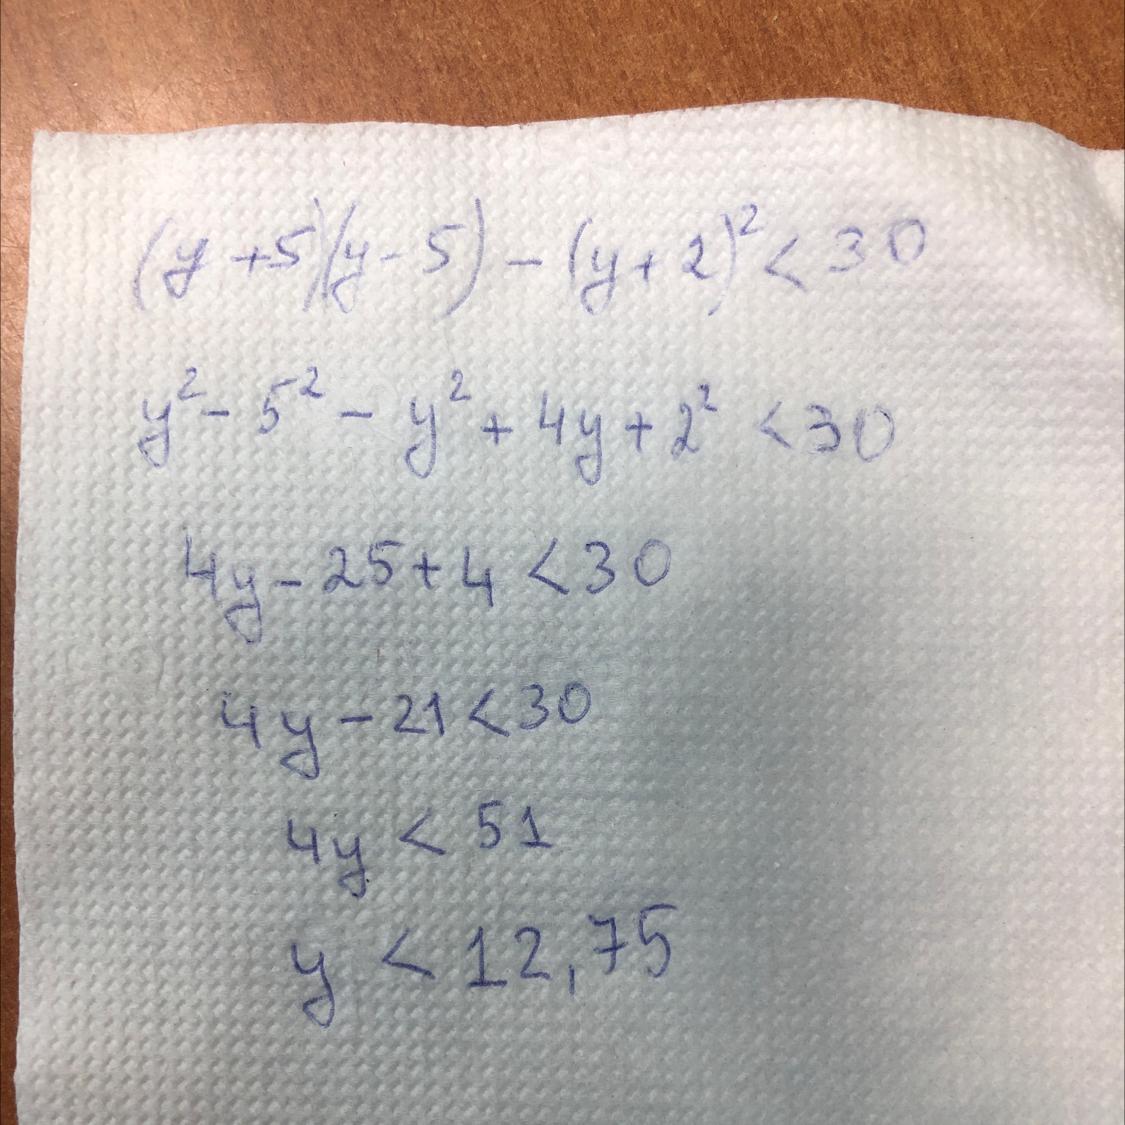 (y+5)(y-5) - (y+2)² < 30
y² - 5² - y² + 4y + 2² < 30
4y - 25 + 4 < 30
4y - 21 < 30
4y < 51
y < 12,75